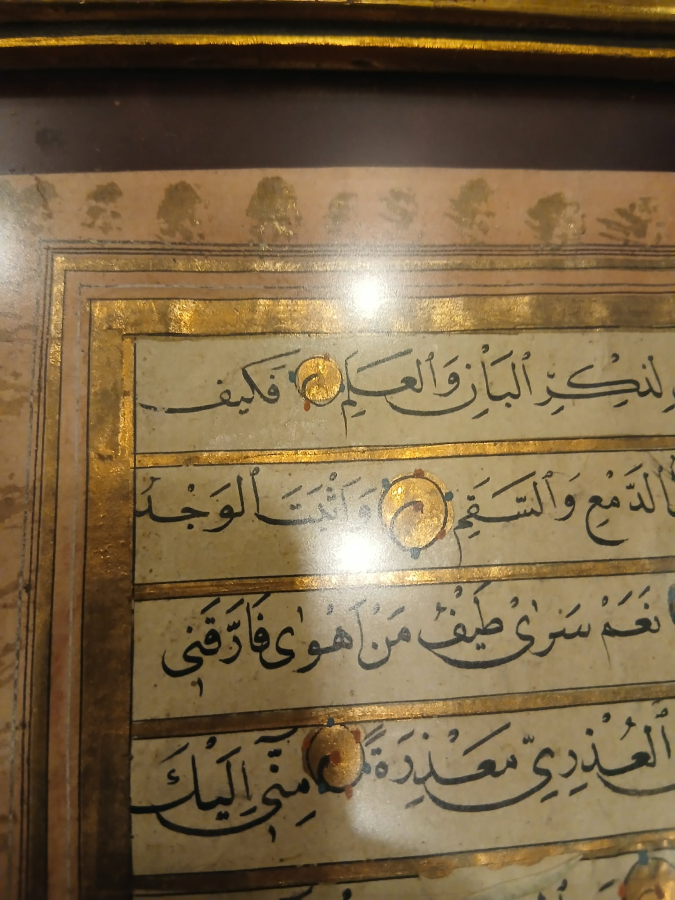 لذِكْرِ ٱلبَانِ وَٱلعَلَمِ فَكيف
ٱلدَّمْعِ وَٱلسَّقَمِ وَاَثْبَتَ ٱلوَجْدُ
نَعَمْ سَرٰىٰ طَيْفُ مَنْ اَهْوٰى فَاَرَّقَنِى
ٱلعُذْرِىِّ مَعْذِرَةً مِنِّى اِلَيْكَ